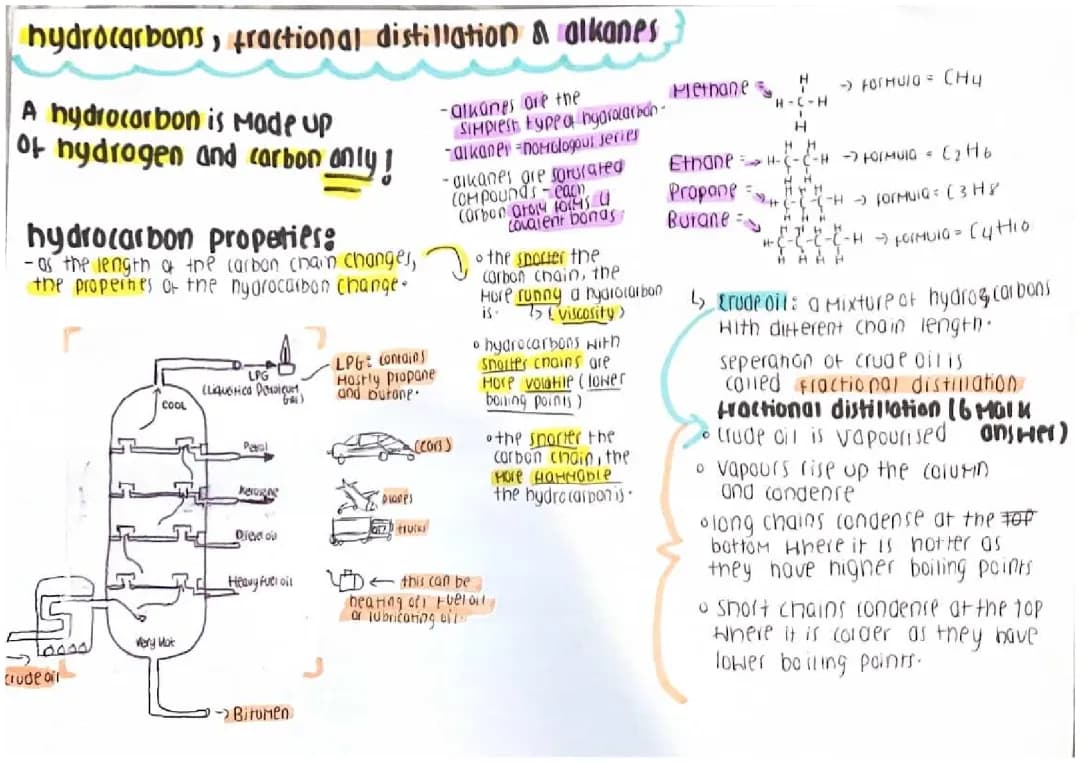 hydrocarbons, fractional distillation & alkanes
A hydrocarbon is made up
of hydrogen and carbon only!
hydrocarbon properties:
- as the length of the carbon chain changes,
the properties of the hydrocarbon change.
- alkanes are the
simplest type of hydrocarbon.
- alkanes = homologous series
- alkanes are saturated
compounds - each
carbon atom forms 4
covalent bonds.
Methane =
H
H-C-H
H
→ formula = CH4
Ethane =
H H
H-C-C-H → formula = C2H6
H H
Propane =
H H H
H-C-C-C-H → formula = C3H8
H H H
Butane =
H-C-C-C-C-H → formula = C4H10
H H H H
○ the shorter the
carbon chain, the
more runny a hydrocarbon
is. ↳ (viscosity)
○ hydrocarbons with
shorter chains are
more volatile (lower
boiling points)
○ the shorter the
carbon chain, the
more flammable
the hydrocarbon is.
↳ Crude oil: a mixture of hydrog carbons
with different chain length.
seperation of crude oil is
called fractional distillation
fractional distillation (6 mark
answer)
○ crude oil is vapourised
○ vapours rise up the column
and condense
○ long chains condense at the top
bottom where it is hotter as
they have higher boiling points
○ short chains condense at the top
where it is colder as they have
lower boiling points.
LPG
(Liquefied Petroleum
Gas)
LPG: contains
mostly propane
and butane.
COOL
Petrol
(cars)
Kerosene
planes
Diesel oil
trucks
Heavy fuel oil
← this can be
heating oil, fuel oil
or lubricating oil.
Very Hot
crude oil
→ Bitumen